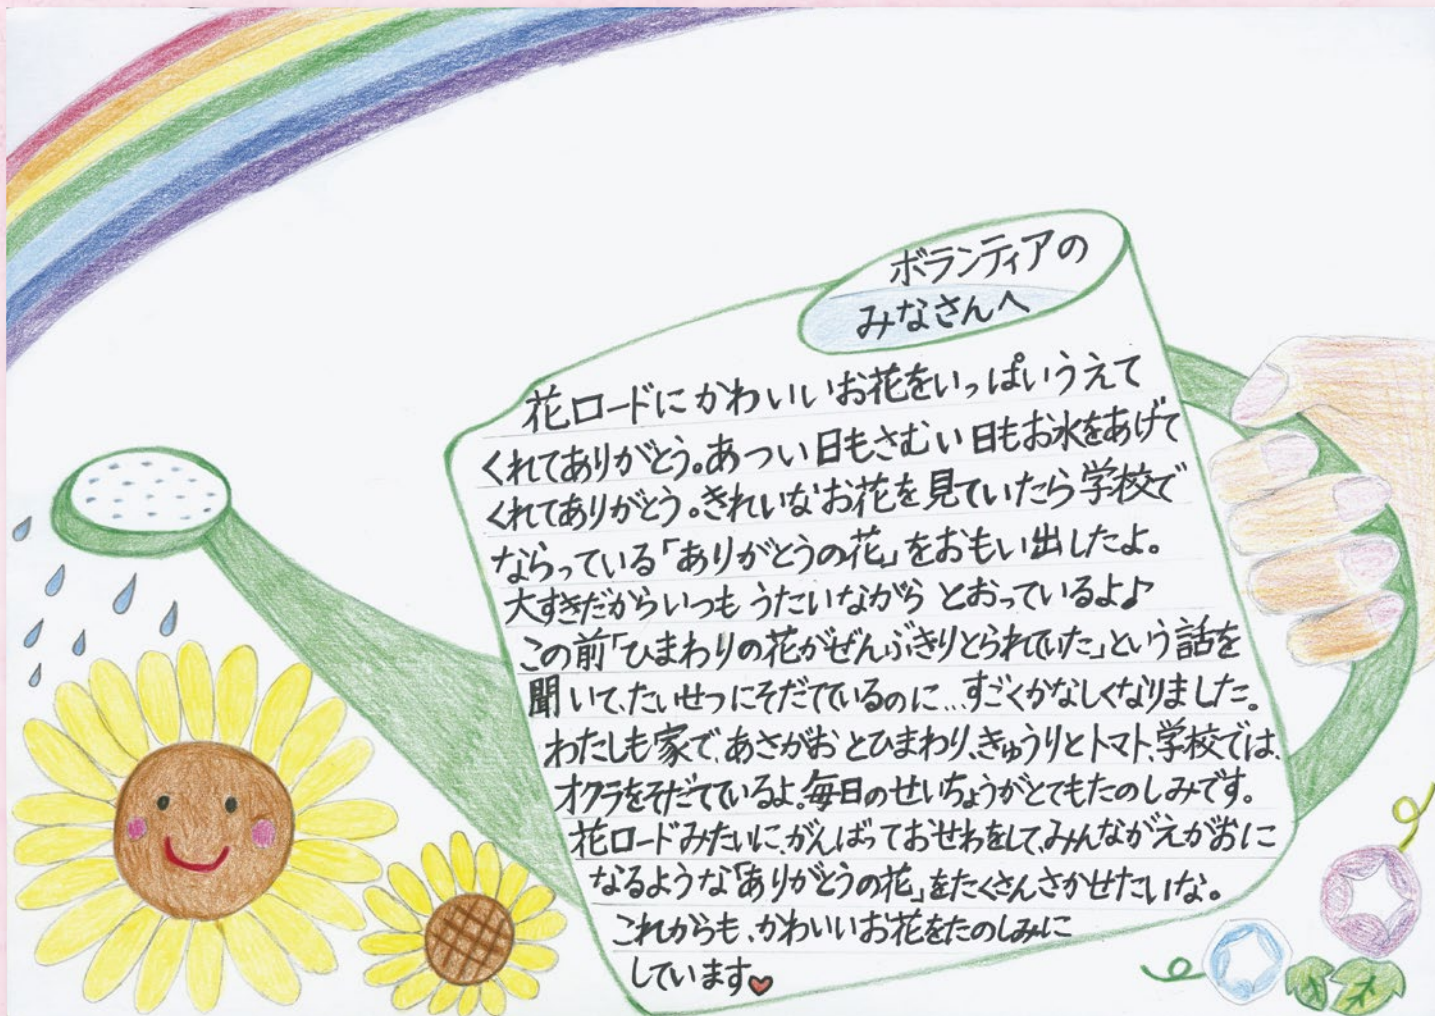 ボランティアの
みなさんへ
花ロードにかわいいお花をいっぱいうえて
くれてありがとう。あつい日もさむい日もお水をあげて
くれてありがとう。きれいなお花を見ていたら学校で
ならっている「ありがとうの花」をおもい出したよ。
大すきだからいつもうたいながらとおっているよ♪
この前「ひまわりの花がぜんぶきりとられていた」という話を
聞いて、たいせつにそだてているのに…すごくかなしくなりました。
わたしも家で、あさがおとひまわり、きゅうりとトマト、学校では、
オクラをそだてているよ。毎日のせいちょうがとてもたのしみです。
花ロードみたいに、がんばっておせわをして、みんながえがおに
なるような「ありがとうの花」をたくさんさかせたいな。
これからも、かわいいお花をたのしみに
しています♥